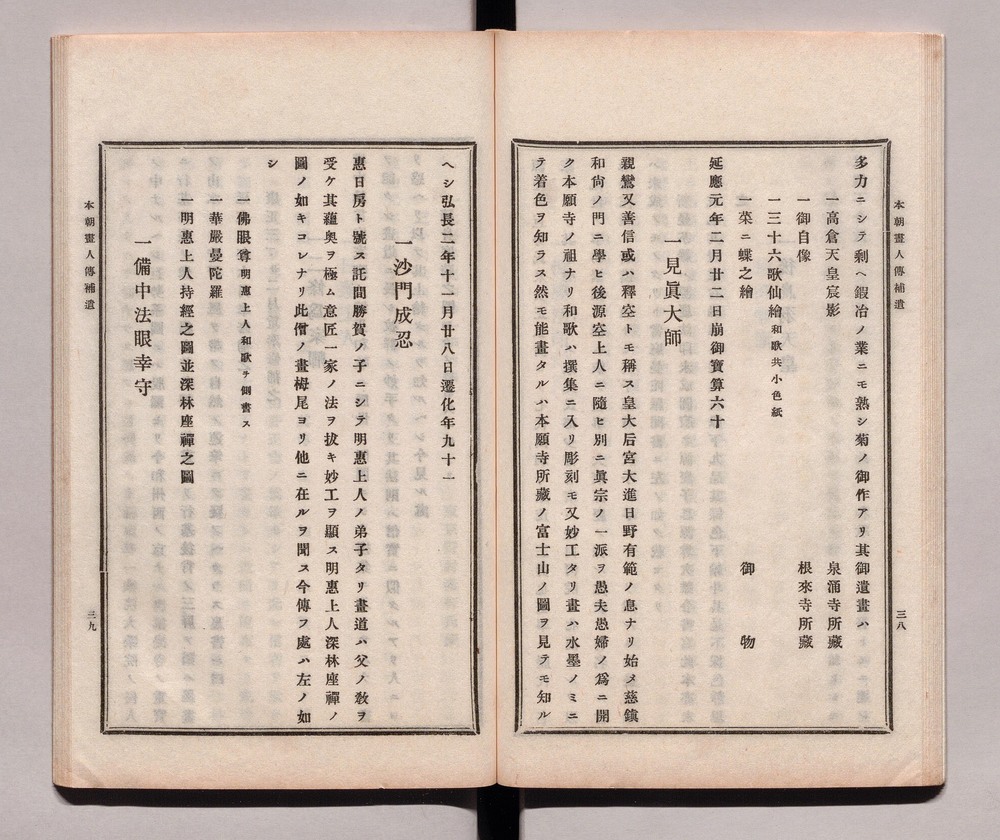 本朝畫人傳補遺
三八
多力ニシテ剩ヘ鍛冶ノ業ニモ熟シ菊ノ御作アリ其御遺畫ハ
一高倉天皇宸影 泉涌寺所藏
一御自像 根來寺所藏
一三十六歌仙繪和歌共小色紙
一菜ニ蝶之繪 御物
延應元年二月廿二日崩御寶算六十
一見眞大師
親鸞又善信或ハ釋空トモ稱ス皇大后宮大進日野有範ノ息ナリ始メ慈鎭
和尙ノ門ニ學ヒ後源空上人ニ隨ヒ別ニ眞宗ノ一派ヲ愚夫愚婦ノ爲ニ開
ク本願寺ノ祖ナリ和歌ハ撰集ニ入リ彫刻モ又妙工タリ畫ハ水墨ノミニ
テ着色ヲ知ラス然モ能畫タルハ本願寺所藏ノ富士山ノ圖ヲ見テモ知ル
ヘシ弘長二年十一月廿八日遷化年九十一
一沙門成忍
惠日房ト號ス託間勝賀ノ子ニシテ明惠上人ノ弟子タリ畫道ハ父ノ敎ヲ
受ケ其蘊奧ヲ極ム意匠一家ノ法ヲ拔キ妙工ヲ顯ス明惠上人深林座禪ノ
圖ノ如キコレナリ此僧ノ畫栂尾ヨリ他ニ在ルヲ聞ス今傳フ處ハ左ノ如
シ
一佛眼尊明惠上人和歌ヲ側書ス
一華嚴曼陀羅
一明惠上人持經之圖並深林座禪之圖
一備中法眼幸守
本朝畫人傳補遺
三九